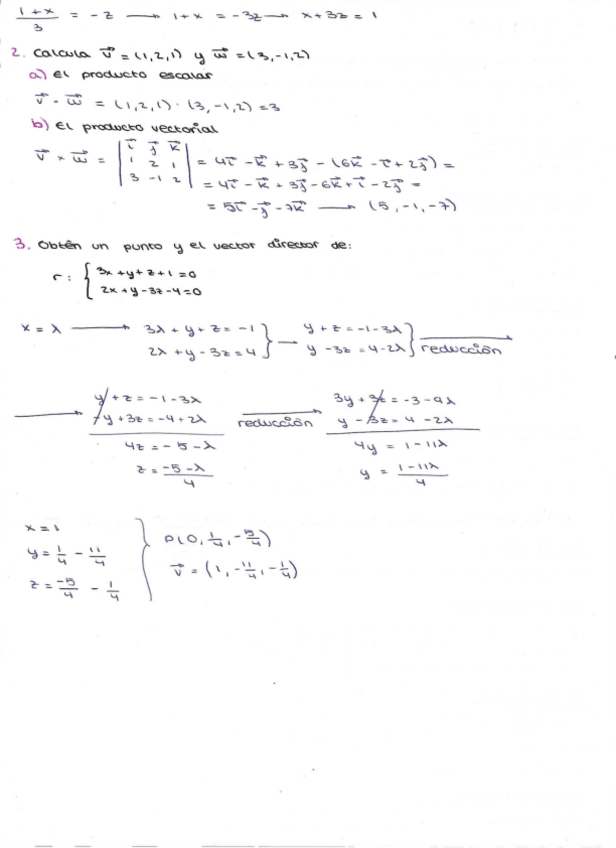 (1+x)/3 = -z → 1+x = -3z → x+3z = 1
2. Calcula v⃗ = (1,2,1) y w⃗ = (3,-1,2)
a) El producto escalar
v⃗ · w⃗ = (1,2,1) · (3,-1,2) = 3
b) El producto vectorial
v⃗ × w⃗ = | i⃗ j⃗ k⃗ ; 1 2 1 ; 3 -1 2 | = 4i⃗ - k⃗ + 3j⃗ - (6k⃗ - i⃗ + 2j⃗) =
= 4i⃗ - k⃗ + 3j⃗ - 6k⃗ + i⃗ - 2j⃗ =
= 5i⃗ - j⃗ - 7k⃗ → (5, -1, -7)
3. Obtén un punto y el vector director de:
r: { 3x+y+z+1=0
2x+y-3z-4=0
x = λ → 3λ + y + z = -1 } → y + z = -1-3λ } reducción
2λ + y - 3z = 4 y - 3z = 4-2λ
→ y + z = -1-3λ reducción → 3y + 3z = -3-9λ
-y + 3z = -4+2λ y - 3z = 4-2λ
4z = -5-λ 4y = 1-11λ
z = (-5-λ)/4 y = (1-11λ)/4
x = 1
y = 1/4 - 11/4
z = -5/4 - 1/4
P(0, 1/4, -5/4)
v⃗ = (1, -11/4, -1/4)